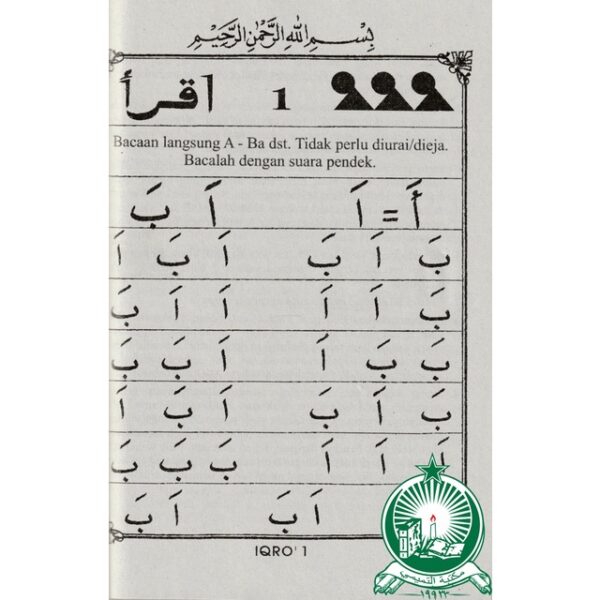 بِسْمِ اللهِ الرَّحْمٰنِ الرَّحِيْمِ
1 اقرأ
Bacaan langsung A - Ba dst. Tidak perlu diurai/dieja.
Bacalah dengan suara pendek.
أَ = اَ اَ بَ
بَ اَ بَ اَ بَ اَ
بَ اَ اَ اَ اَ بَ
بَ بَ اَ اَ بَ بَ
بَ اَ بَ اَ بَ اَ
اَ اَ اَ بَ بَ بَ
اَ بَ اَ بَ
IQRO' 1
مكتبة التميمي